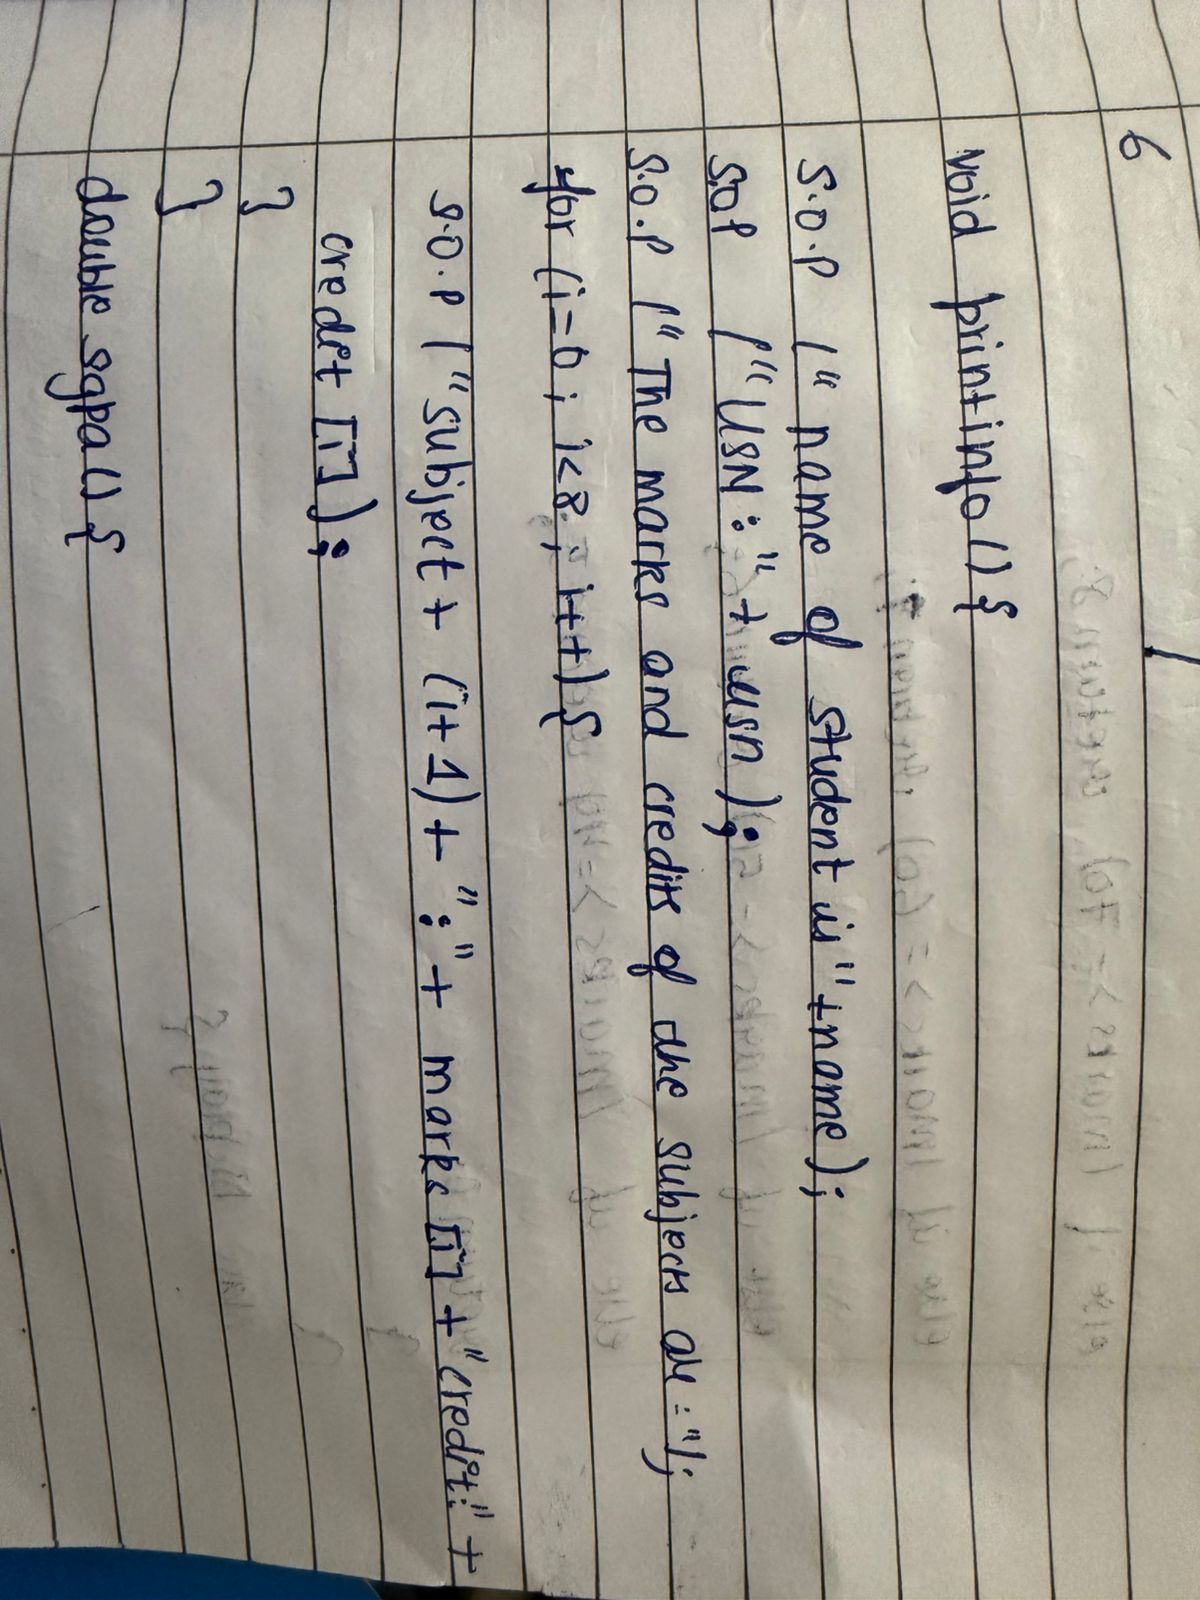 6
void printinfo(){
S.O.P ("name of student is" +name);
S.O.P ("USN:" + usn);
S.O.P ("The marks and credits of the subjects are:");
for (i=0; i<8; i++){
S.O.P ("subject + (i+1) + ":" + marks[i] + "credit:" +
credit [i]);
}
}
double sgpa() {